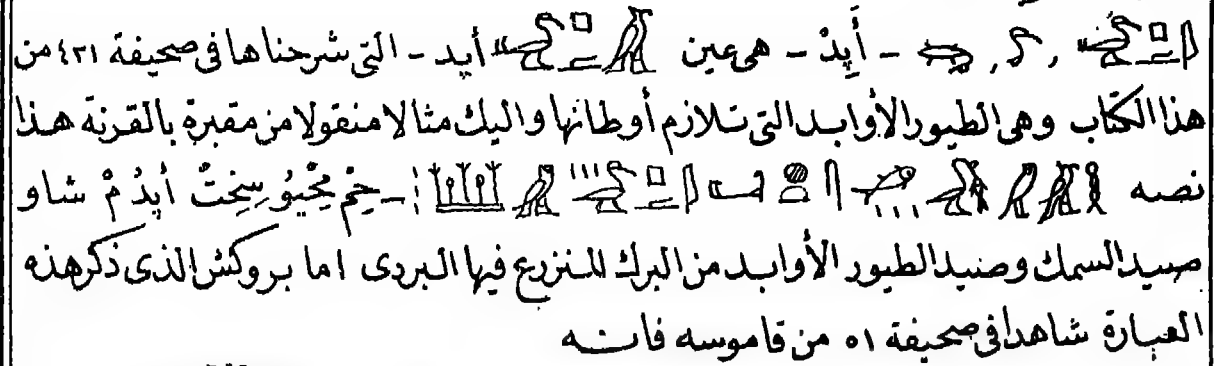 - أَيِدْ - هى عين أيد - التى شرحناها فى صحيفة ٤٢١ من
هذا الكتاب وهى الطيور الأوابد التى تلازم أوطانها واليك مثالا منقولا من مقبرة بالقرنة هذا
نصه - حِمْ مِحْيُو سِخِتْ أَيِدُ مْ شاو
صيد السمك وصيد الطيور الأوابد من البرك المنزرع فيها البردى اما بروكش الذى ذكر هذه
العبارة شاهدا فى صحيفة ٥١ من قاموسه فانه